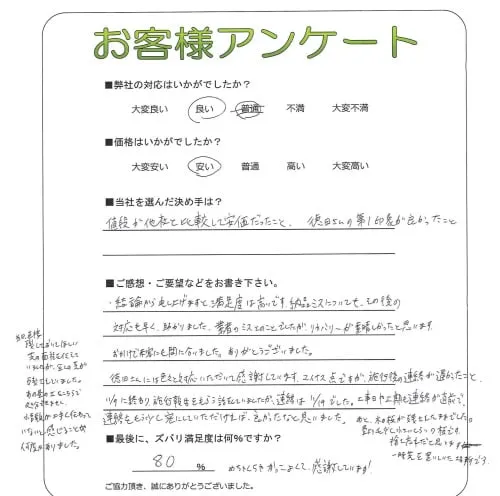 お客様アンケート
■弊社の対応はいかがでしたか？
大変良い 良い 普通 不満 大変不満
■価格はいかがでしたか？
大変安い 安い 普通 高い 大変高い
■当社を選んだ決め手は？
値段が他社と比較して安価だったこと、徳田さんの第1印象が良かったこと
■ご感想・ご要望などをお書き下さい。
・結論から申し上げますと満足度は高いです。納品ミスについても、その後の
対応も早く、助かりました。業者のミスとのことでしたが、リカバリーが素晴しかったと思います
おかげで希望にも間に合いました。ありがとうございました。
徳田さんには色々と対応いただいて感謝しています。マイナス点ですが、施行後の連絡が遅かったこと、
に終わり、施行報告をもらう話でしたが、連絡は でした。工事日や工期も連絡が直前で、
連絡をもう少し密にしていただければ、良かったなと思いました。
■最後に、ズバリ満足度は何％ですか？
80 ％ めちゃくちゃかっこよくて、感謝しています！
ご協力頂き、誠にありがとうございました。